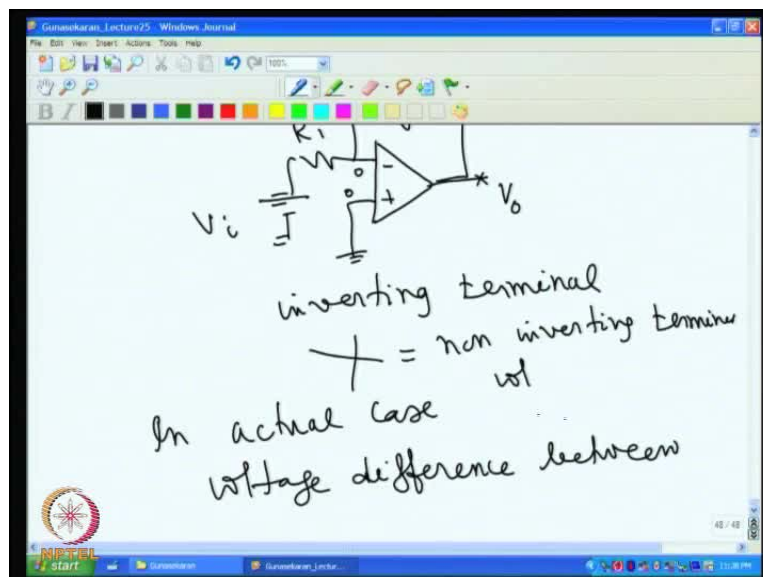 Gunasekaran_Lecture25 - Windows Journal
File Edit View Insert Actions Tools Help
100%
B I
R1
-
+
Vi
Vo
inverting terminal
= non inverting termine
vol
In actual case
voltage difference between
48 / 48
NPTEL
start Gunasekaran Gunasekaran_Lectur... 11:28 PM